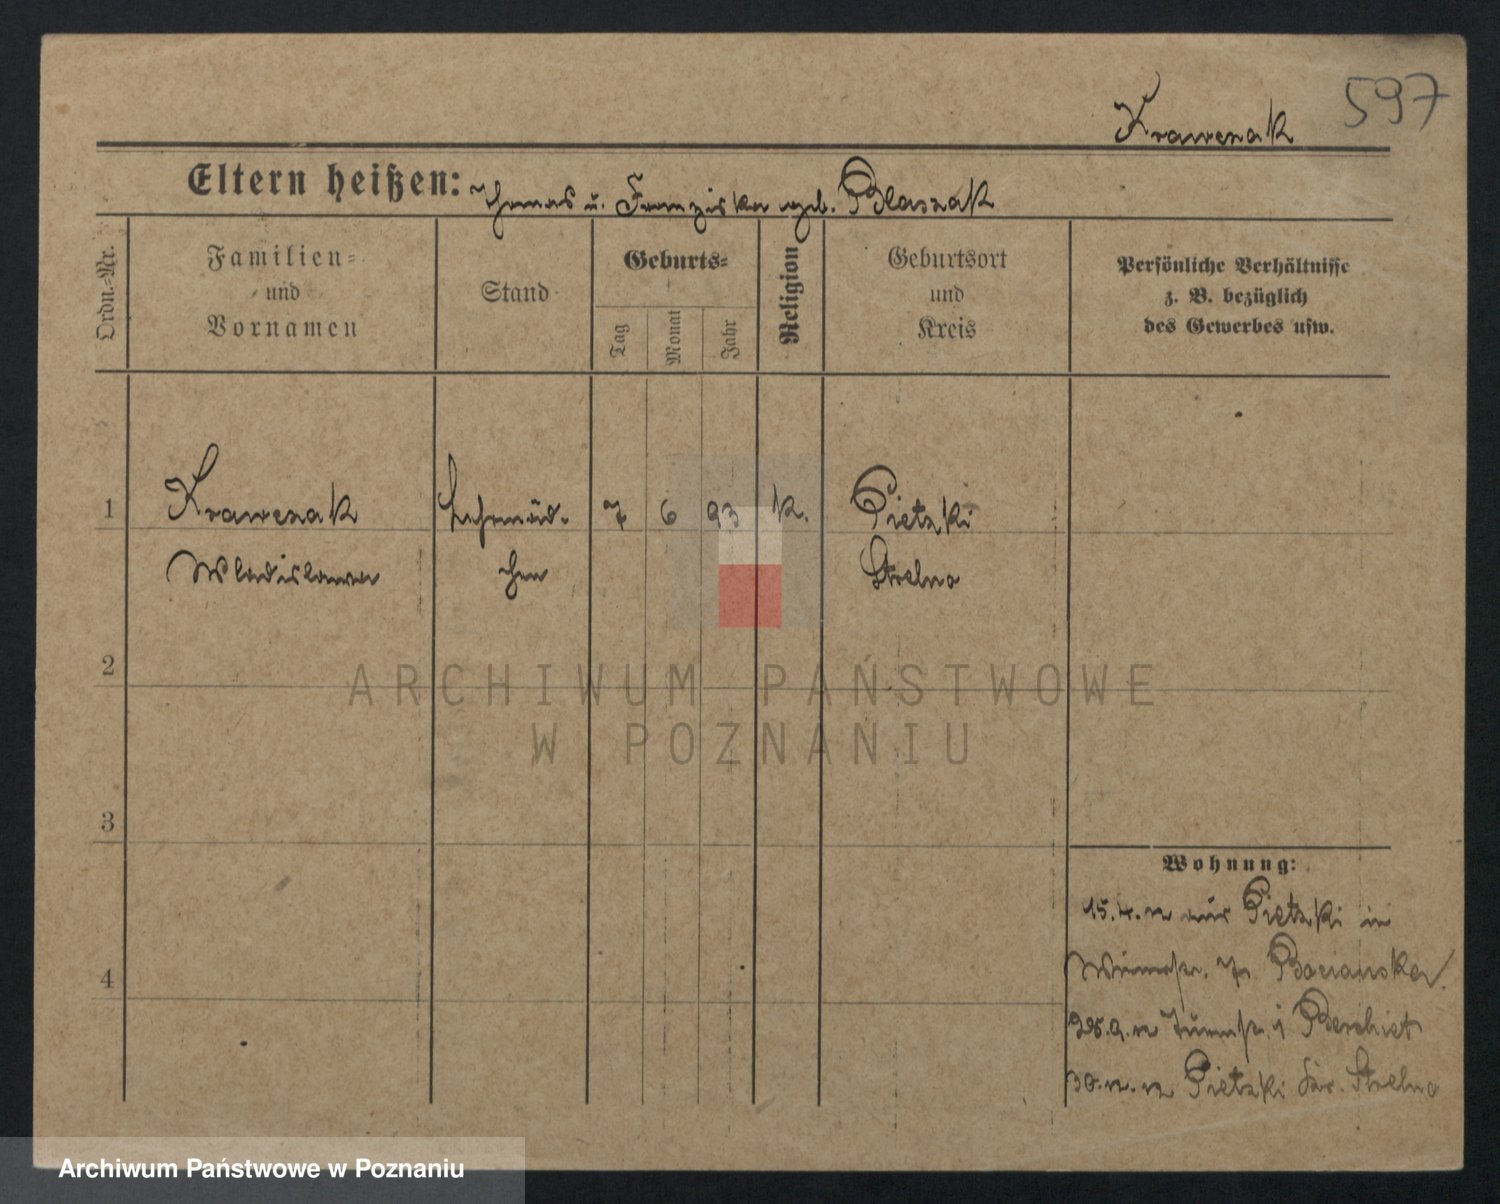 597
Krawczak
Eltern heißen: Thomas u. Franziska geb. Blaszak
Ordn.-Nr.
Familien-
und
Vornamen
Stand
Geburts-
Tag
Monat
Jahr
Religion
Geburtsort
und
Kreis
Persönliche Verhältnisse
z. B. bezüglich
des Gewerbes usw.
1 Krawczak Lehrmäd- 7 6 93 k. Pietzki
Wladislawa chen Strelno
2
ARCHIWUM PAŃSTWOWE
W POZNANIU
3
Wohnung:
15.4.12 aus Pietzki in
Bocianska
4
Pietzki Kr. Strelno
Archiwum Państwowe w Poznaniu